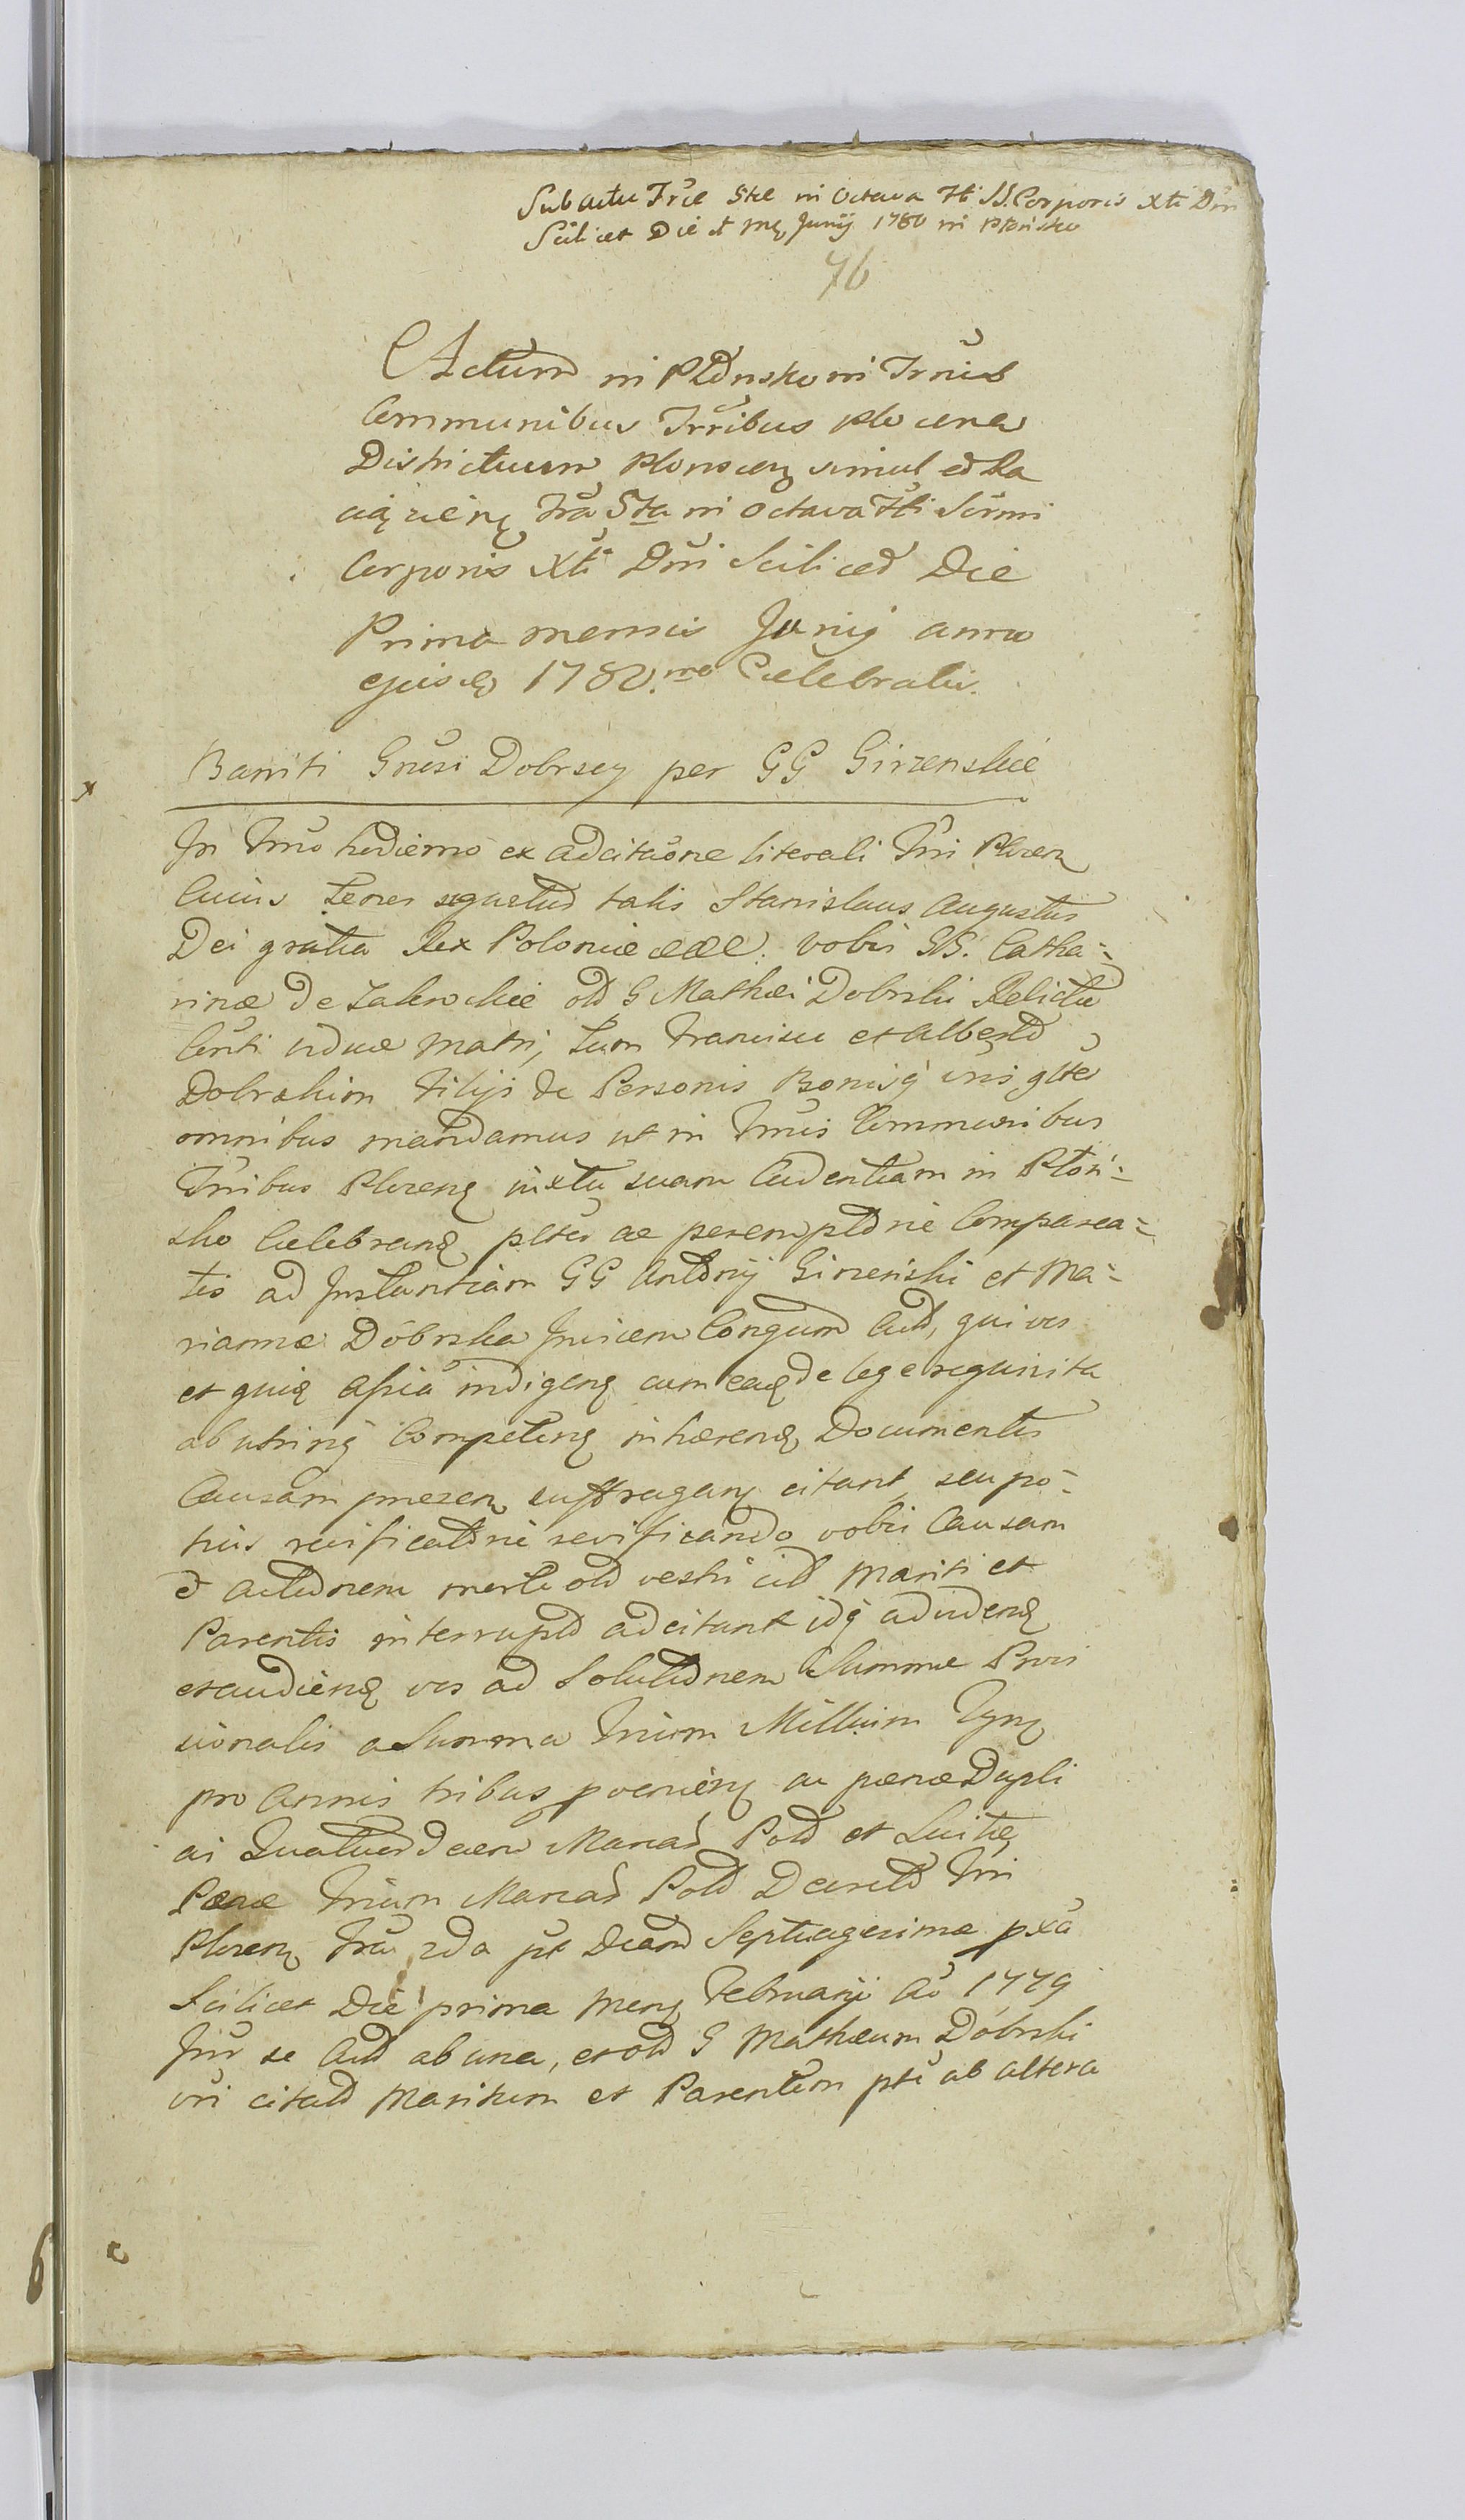 Sub actu Frie Stie in Octava Fti SS. Corporis Xti Dni
Scilicet Die et Mę Junij 1780 in Płońsko
76
Actum in Płońsko in Trnis
Communibus Trribus Plocen
Districtuum Plonscen simul et Ra
ciązienę Fria 5ta in Octava Fti Ssrmi
Corporis Xti Dni Scilicet Die
Prima mensis Junij anno
ejusdę 1780.mo Celebratis.
Baniti Gnrsi Dobrscy per GG Girzenskie
In Trno hodierno ex adcitatione literali Trri Plocen
Cuius Tenor sequitur talis Stanislaus Augustus
Dei gratia Rex Poloniæ &&&. vobis GG. Catha=
rinæ de Zalewskie olim G Mathæi Dobrski Relictæ
Csrti viduæ Matri, tum Francisco et Alberto
Dobrskim Filijs de Personis Bonisq vris glter
omnibus mandamus ut in Trnis Communibus
Trribus Plocenę iuxta suam Cadentiam in Płoń=
sko Celebranę plter ac peremptorie Comparea=
tis ad Instantiam GG Antonij Girzeński et Ma=
riannæ Dóbrska Invicem Conjugum Act, qui vos
et quię assia indigenę cum eaqę de lege requisita
ab utrinq Competenę inhærenę Documentis
Causam præsen suffraganę citant seu po=
tius reificatorie reificando vobis Causam
et Actionem morte olim vestri cit Mariti et
Parentis interrupta adcitant idq advidenę
et audienę vos ad Solutionem Summæ Provi
sionalis a Summa Trium Millium Tynf
pro Annis tribus provenienę ac pænæ Dupli
ai Quatuordecem Marcas Pol et Luitæ
Pænæ Trium Marcas Pol Decreto Trri
Plocen Fria 2da pt Dcam Septuagesimæ pxa
Scilicet Die prima Menę Februarij Ao 1779
Inr se Act ab una, et olim G Mathæum Dóbrski
vri citat Maritum et Parentem pte ab altera